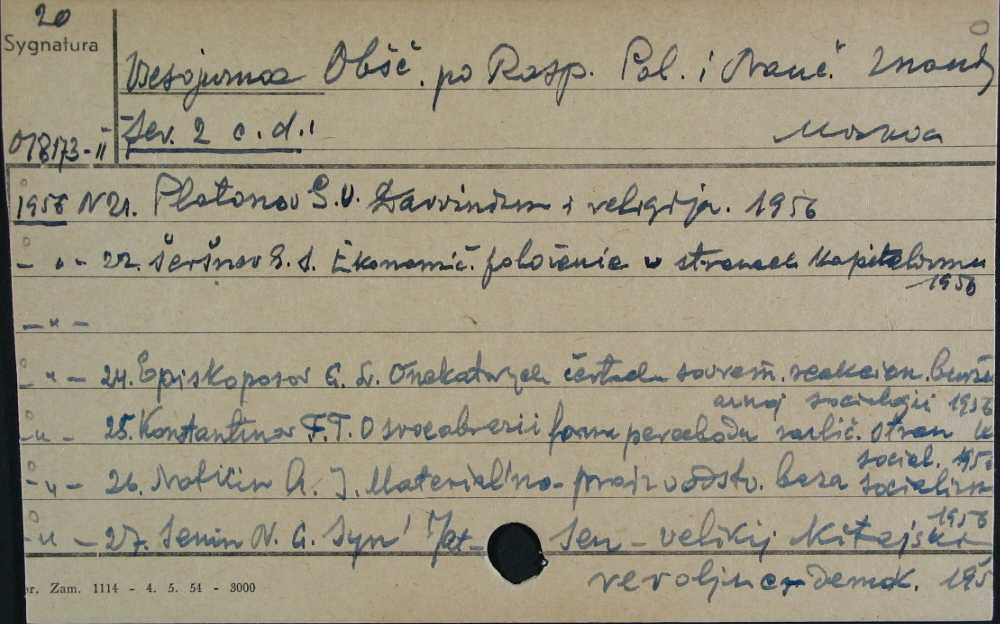 20
Sygnatura
Vsesojuznoe Obšč. po Rasp. Pol. i Nauč. Znanij
Ser. 2 c. d.
Moskva
018173-II
1956 N 21. Platonov G. V. Darvinizm i religija. 1956
- " - 22. Šeršnev E. S. Ekonomič. položenie v stranach kapitalizma
1956
- " -
- " - 24. Episkoposov G. L. O nekatorych čertach sovrem. reakcion. buržu
aznoj sociologii 1956
- " - 25. Konstantinov F. T. O svoeobrazii form perechoda različ. stran k
social. 1956
- " - 26. Notkin A. I. Material'no-proizvodstv. baza socializma
1956
- " - 27. Senin N. G. Syn' Jat-Sen - velikij kitajskij
revoljuc.-demok. 195
Zam. 1114 - 4. 5. 54 - 3000